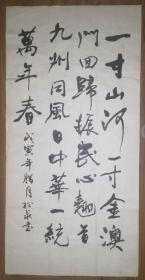 一寸山河一寸金澳
门回歸振民心翹首
九州同風日中華一統
萬年春
戊寅年腊月松泉书